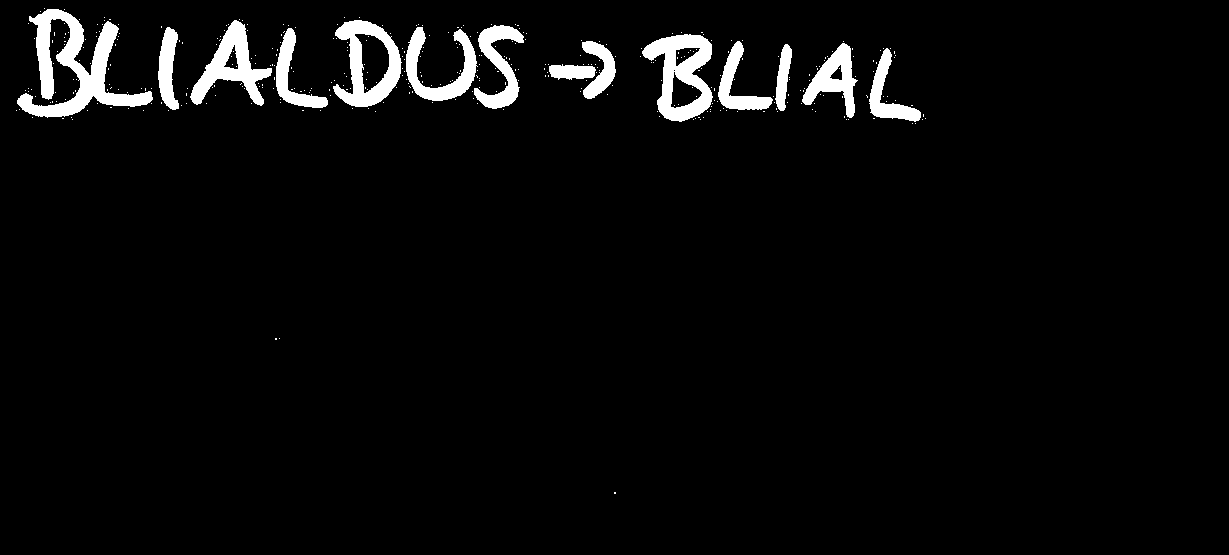 BLIALDUS → BLIAL